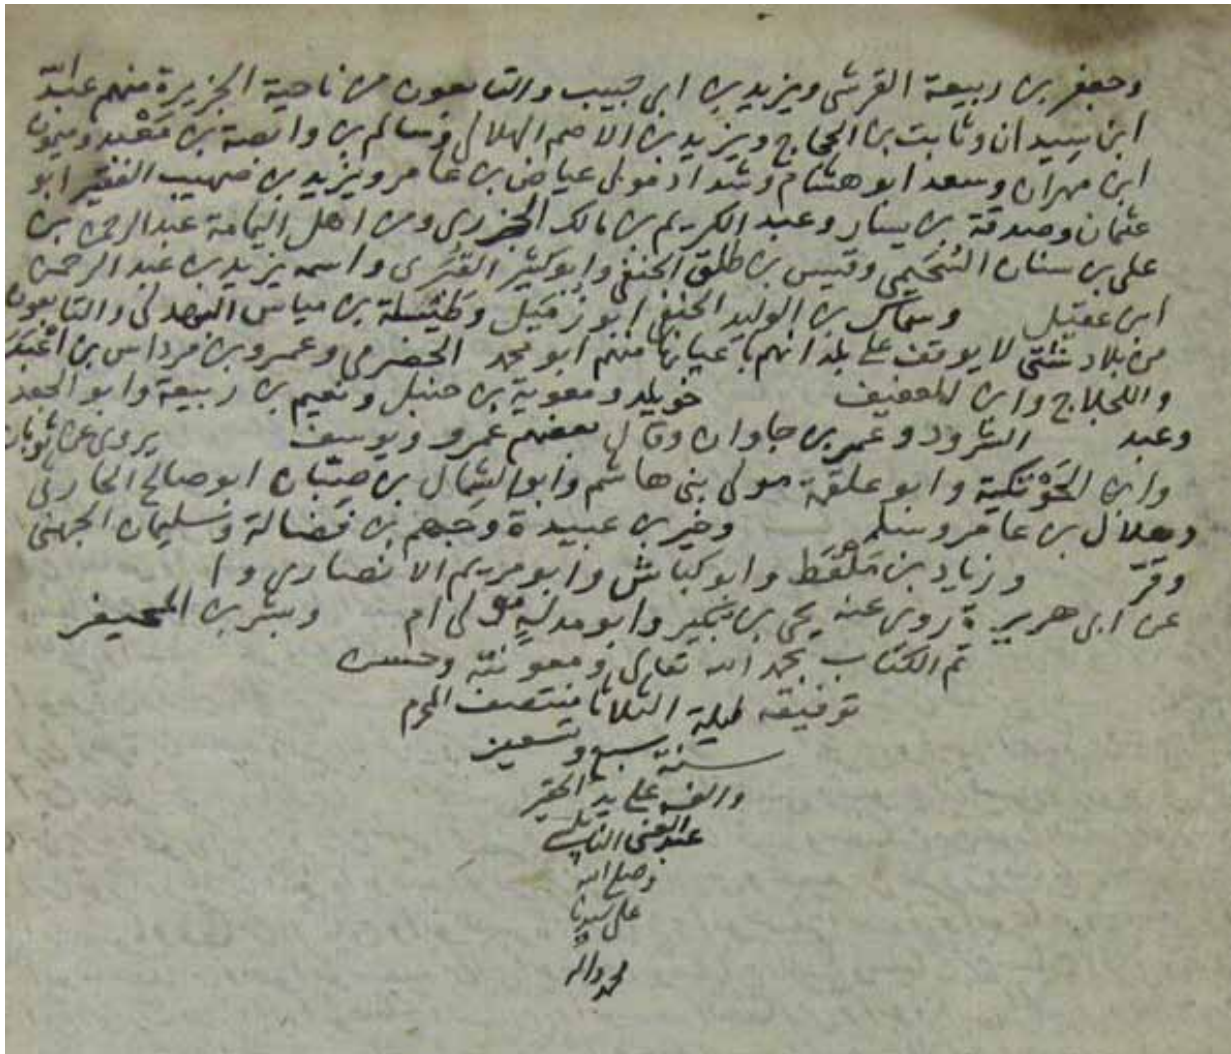 وجعفر بن ربيعة القرشي ويزيد بن ابي حبيب والتابعون من ناحية الجزيرة منهم عبدالله
ابن سيدان وثابت بن الحجاج ويزيد بن الاصم الهلالي وسالم بن وابصة بن معبد وميمون
ابن مهران وسعد ابو هشام وشداد مولى عياض بن عامر ويزيد بن صهيب الفقير ابو
عثمان وصدقة بن يسار وعبد الكريم بن مالك الجزري ومن اهل اليمامة عبد الرحمن بن
علي بن سنان السُحَيمي وقيس بن طلق الحنفي وابو كثير الغُبَري واسمه يزيد بن عبد الرحمن
ابن عقيل وسماك بن الوليد الحنفي ابو زُمَيل وطَيْسلة بن مياس النهدلي والتابعون
من بلاد شتى لا يوقف على بلدانهم باعيانها منهم ابو محمد الحضرمي وعمرو بن مرداس بن
واللجلاج وابن خويلد ومعوية بن حنبل ونعيم بن ربيعة وابو الجعد
وعبد الشرود وعمر بن جاوان وقال بعضهم عمرو ويوسف يروي عن ثوبان
وابن الحَوْتَكية وابو علقمة مولى بني هاشم وابو الشمال بن ضِبَاب ابو صالح الحارثي
وهلال بن عامر وسلم وخير بن عبيدة وجهم بن فضالة وسليمان الجهني
وقرّ وزياد بن مِلْقَط وابو كباش وابو مريم الانصاري وا
عن ابي هريرة روى عنه يحيى بن وابو مدله مولى ام وبشر بن المحيفز
تم الكتاب بحمد الله تعالى ومعونته وحسن
توفيقه ليلة الثلاثا منتصف المحرم
سنة سبع وتسعين
والف على يد الحقير
عبد الغني النابلسي
وصلى الله
على سيدنا
محمد واله